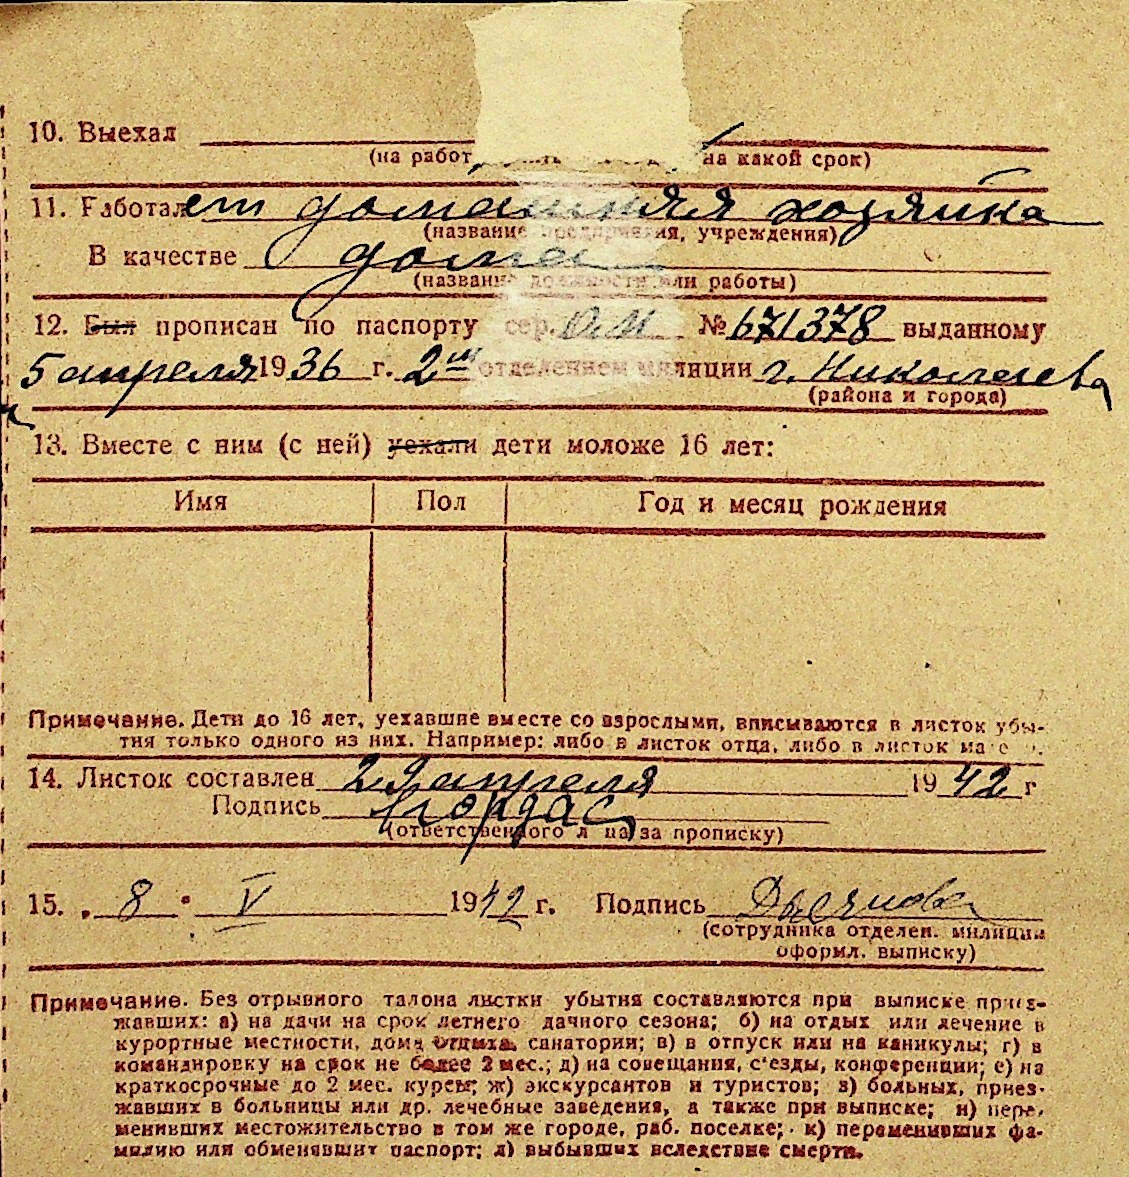 10. Выехал
(на работ на какой срок)
11. Работает домашняя хозяйка
(название предприятия, учреждения)
В качестве дома
(название должности или работы)
12. Был прописан по паспорту сер. О.М № 671378 выданному
5 апреля 1936 г. 2ым отделением милиции г. Николаева
(района и города)
13. Вместе с ним (с ней) уехали дети моложе 16 лет:
Имя Пол Год и месяц рождения
Примечание. Дети до 16 лет, уехавшие вместе со взрослыми, вписываются в листок убы-
тия только одного из них. Например: либо в листок отца, либо в листок
14. Листок составлен 29 апреля 1942 г
Подпись
(ответственного лица за прописку)
15. „8" V 1942 г. Подпись
(сотрудника отделен. милиции
оформл. выписку)
Примечание. Без отрывного талона листки убытия составляются при выписке приез-
жавших: а) на дачи на срок летнего дачного сезона; б) на отдых или лечение в
курортные местности, дома отдыха, санатории; в) в отпуск или на каникулы; г) в
командировку на срок не более 2 мес.; д) на совещания, с'езды, конференции; е) на
краткосрочные до 2 мес. курсы; ж) экскурсантов и туристов; з) больных, приез-
жавших в больницы или др. лечебные заведения, а также при выписке; и) пере-
менивших местожительство в том же городе, раб. поселке; к) переменивших фа-
милию или обменявших паспорт; л) выбывших вследствие смерти.